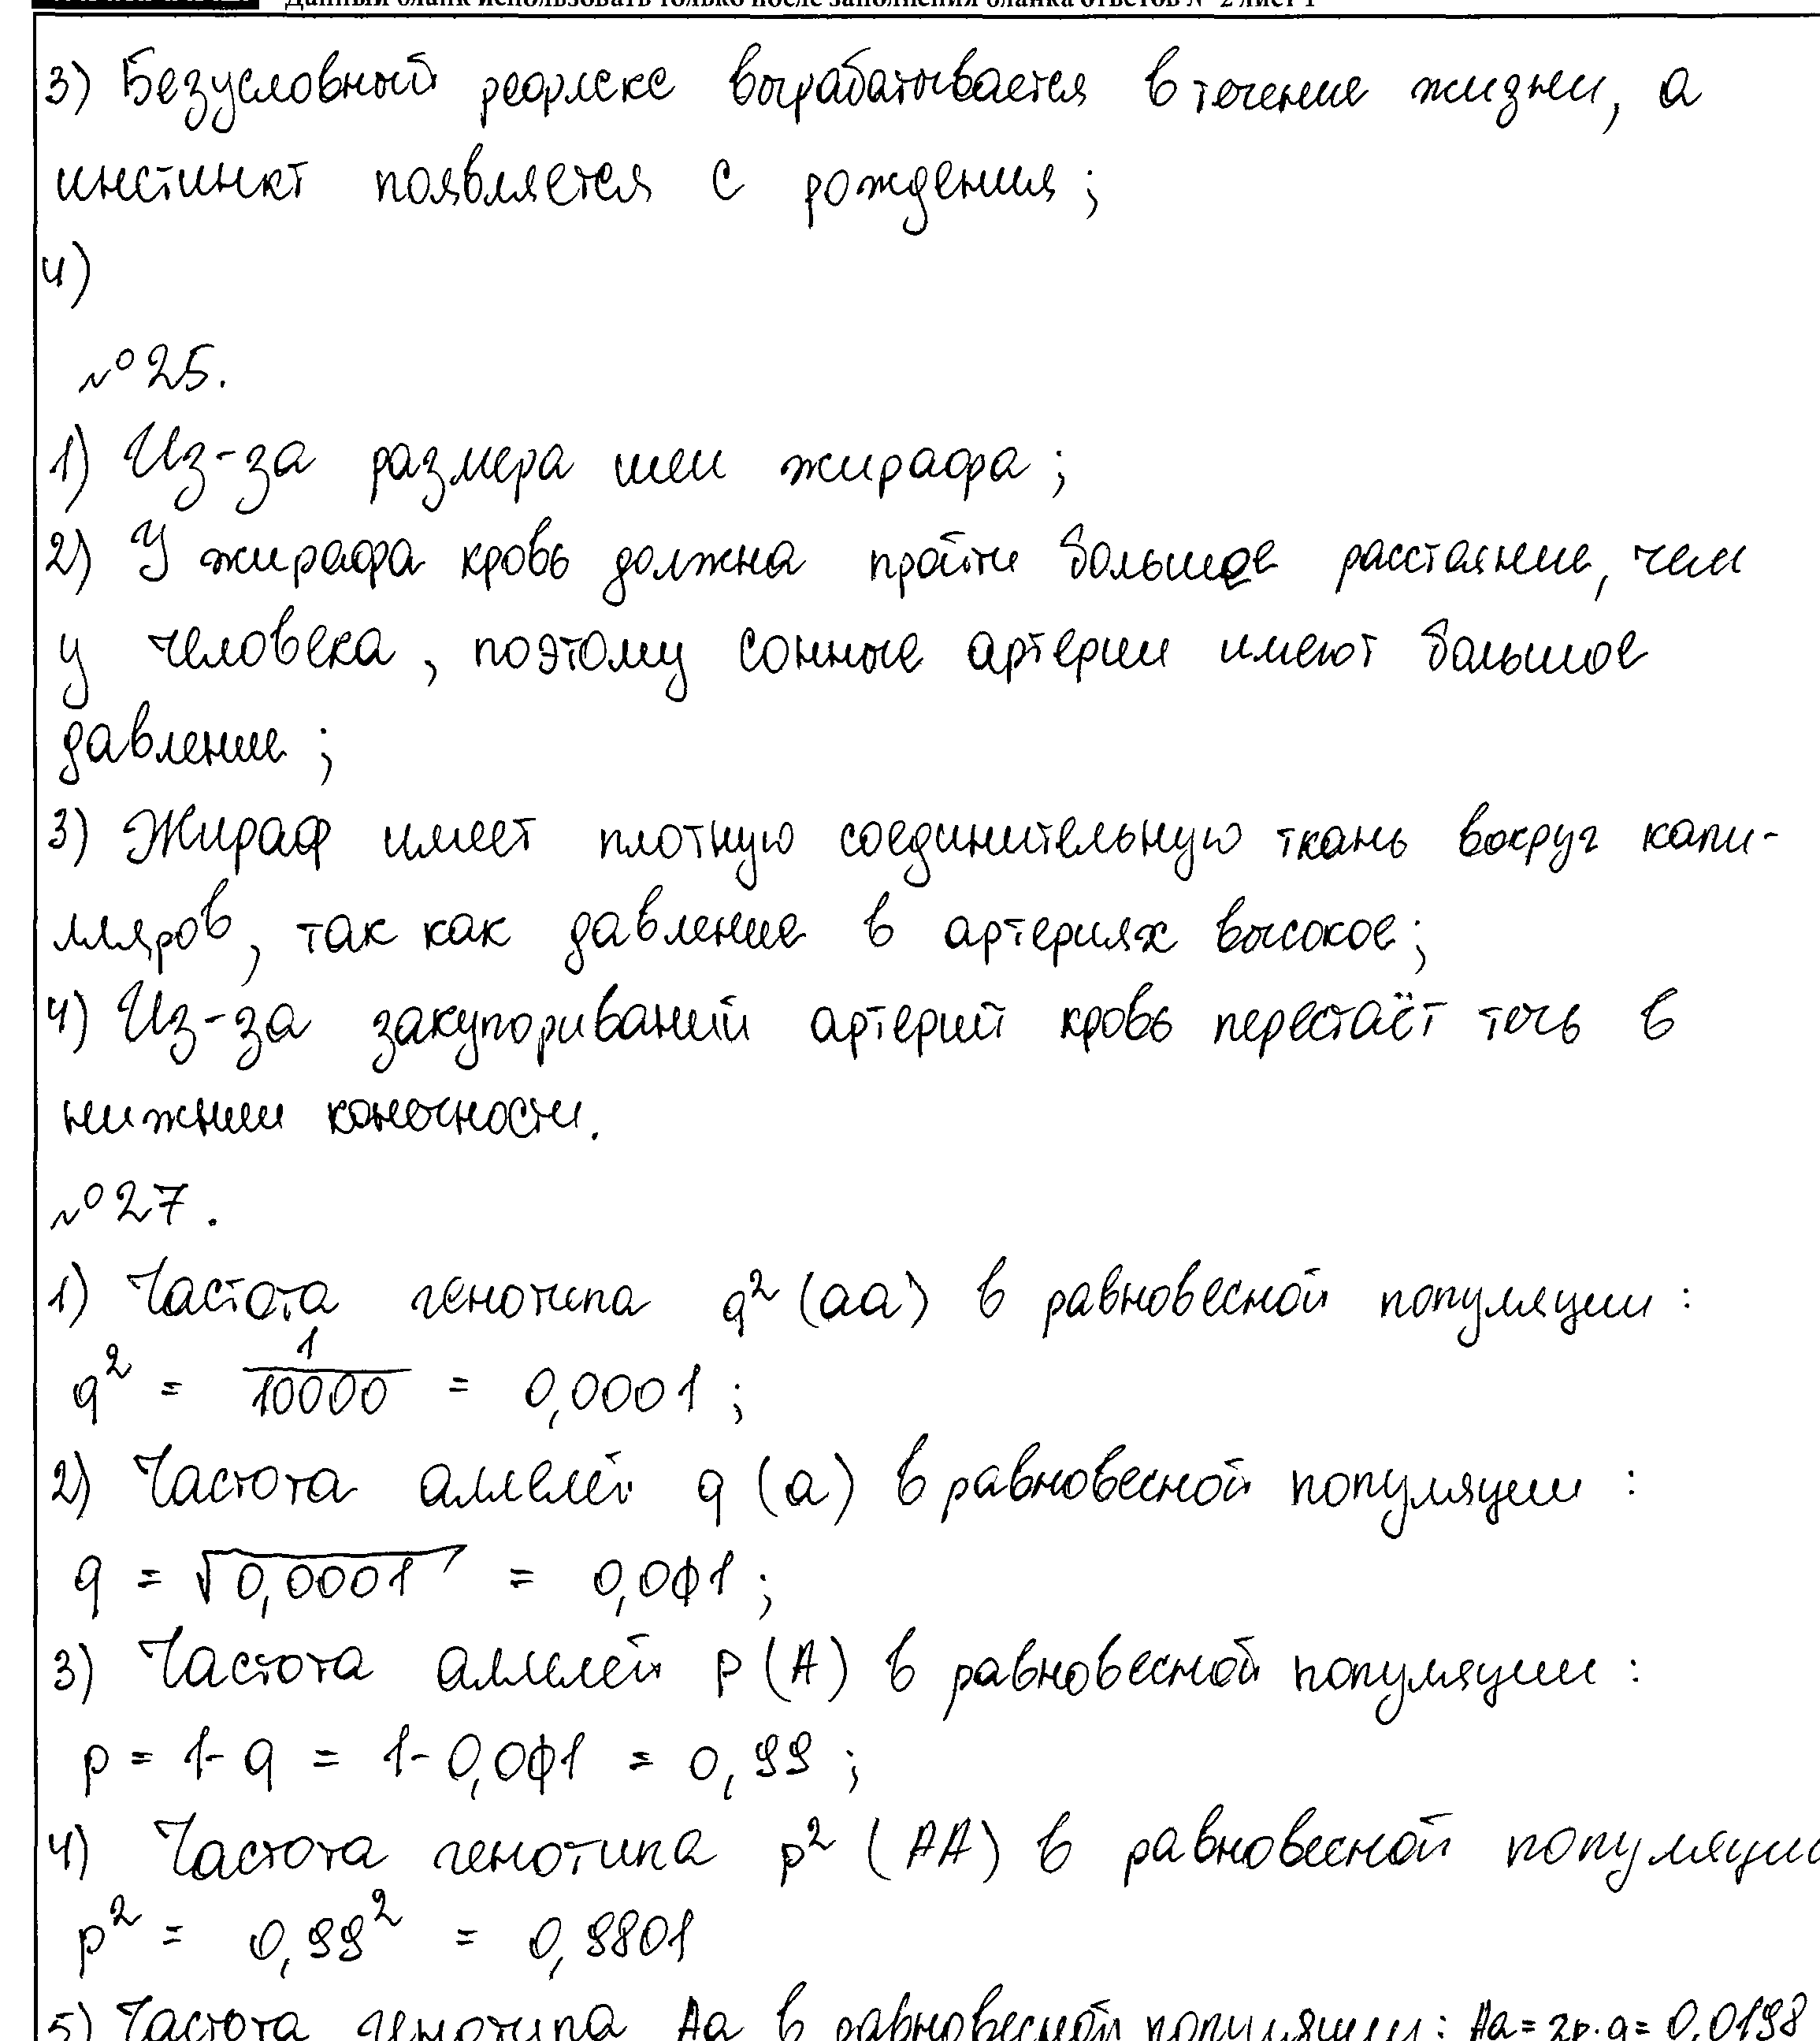 Данный бланк использовать только после заполнения бланка ответов № 2 лист 1
3) Безусловный рефлекс вырабатывается в течение жизни, а
инстинкт появляется с рождения;
4)
№25.
1) Из-за размера шеи жирафа;
2) У жирафа кровь должна пройти большее расстояние, чем
у человека, поэтому сонные артерии имеют большое
давление;
3) Жираф имеет плотную соединительную ткань вокруг капи-
лляров, так как давление в артериях высокое;
4) Из-за закупориваний артерий кровь перестаёт течь в
нижнии конечности.
№27.
1) Частота генотипа q² (aa) в равновесной популяции:
q² = 1/10000 = 0,0001;
2) Частота аллелей q (a) в равновесной популяции:
q = √0,0001 = 0,01;
3) Частота аллелей p (A) в равновесной популяции:
p = 1-q = 1-0,01 = 0,99;
4) Частота генотипа p² (AA) в равновесной популяции
p² = 0,99² = 0,9801
5) Частота генотипа Aa в равновесной популяции: Aa=2p·q=0,0198